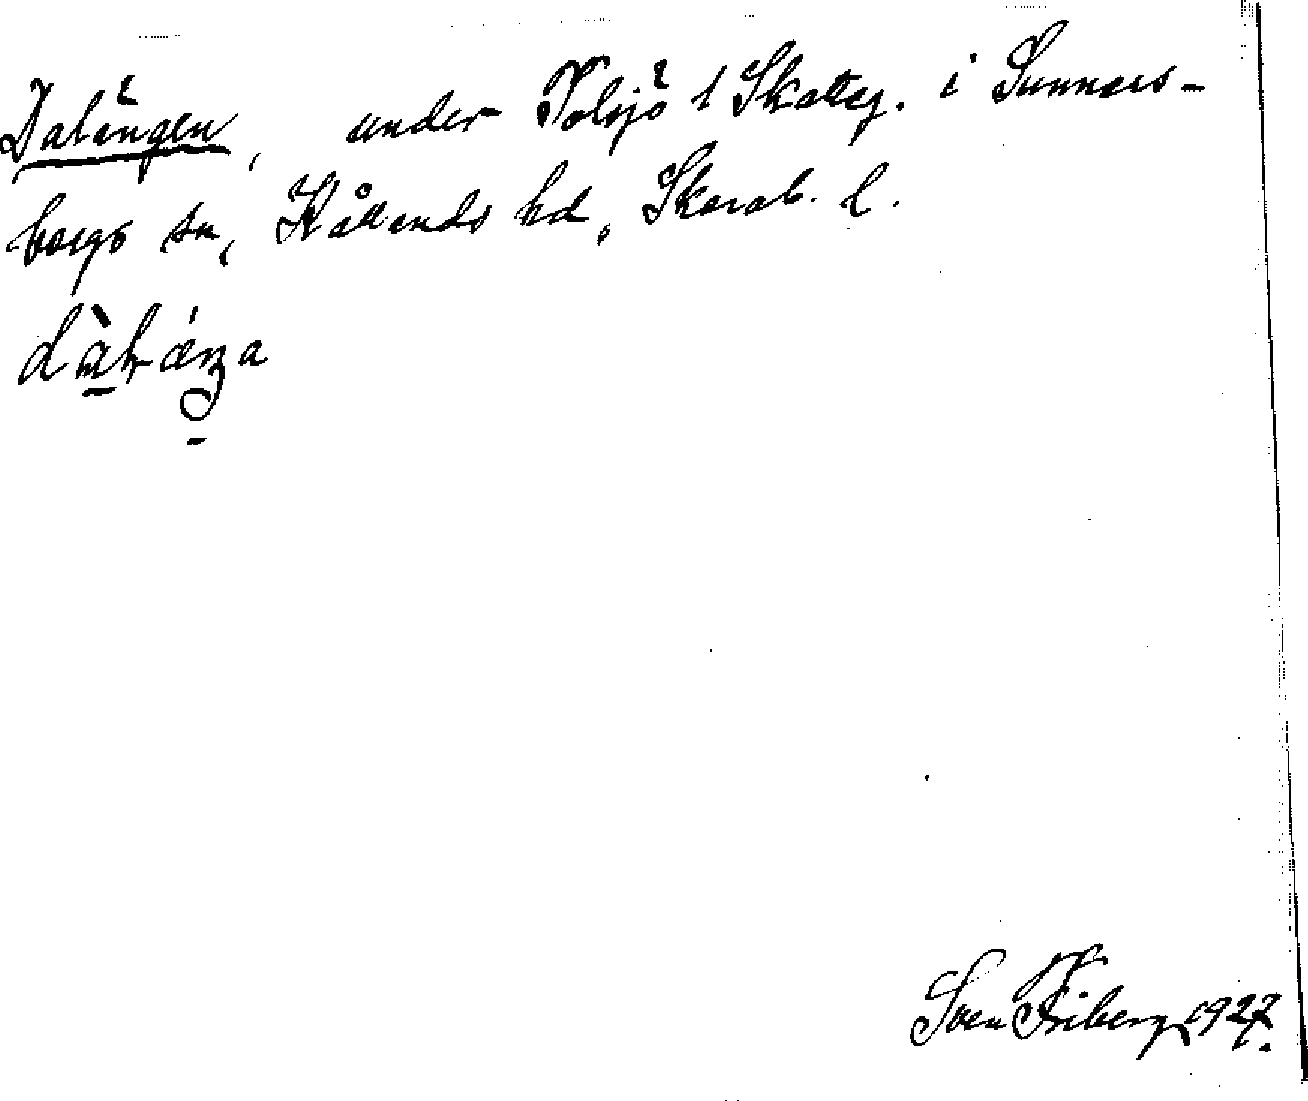 Dalängen, under Tolsjö 1 Skatteg. i Sunners-
bergs sn, Kållands hd, Skarab. l.
Sven Friberg 1927.